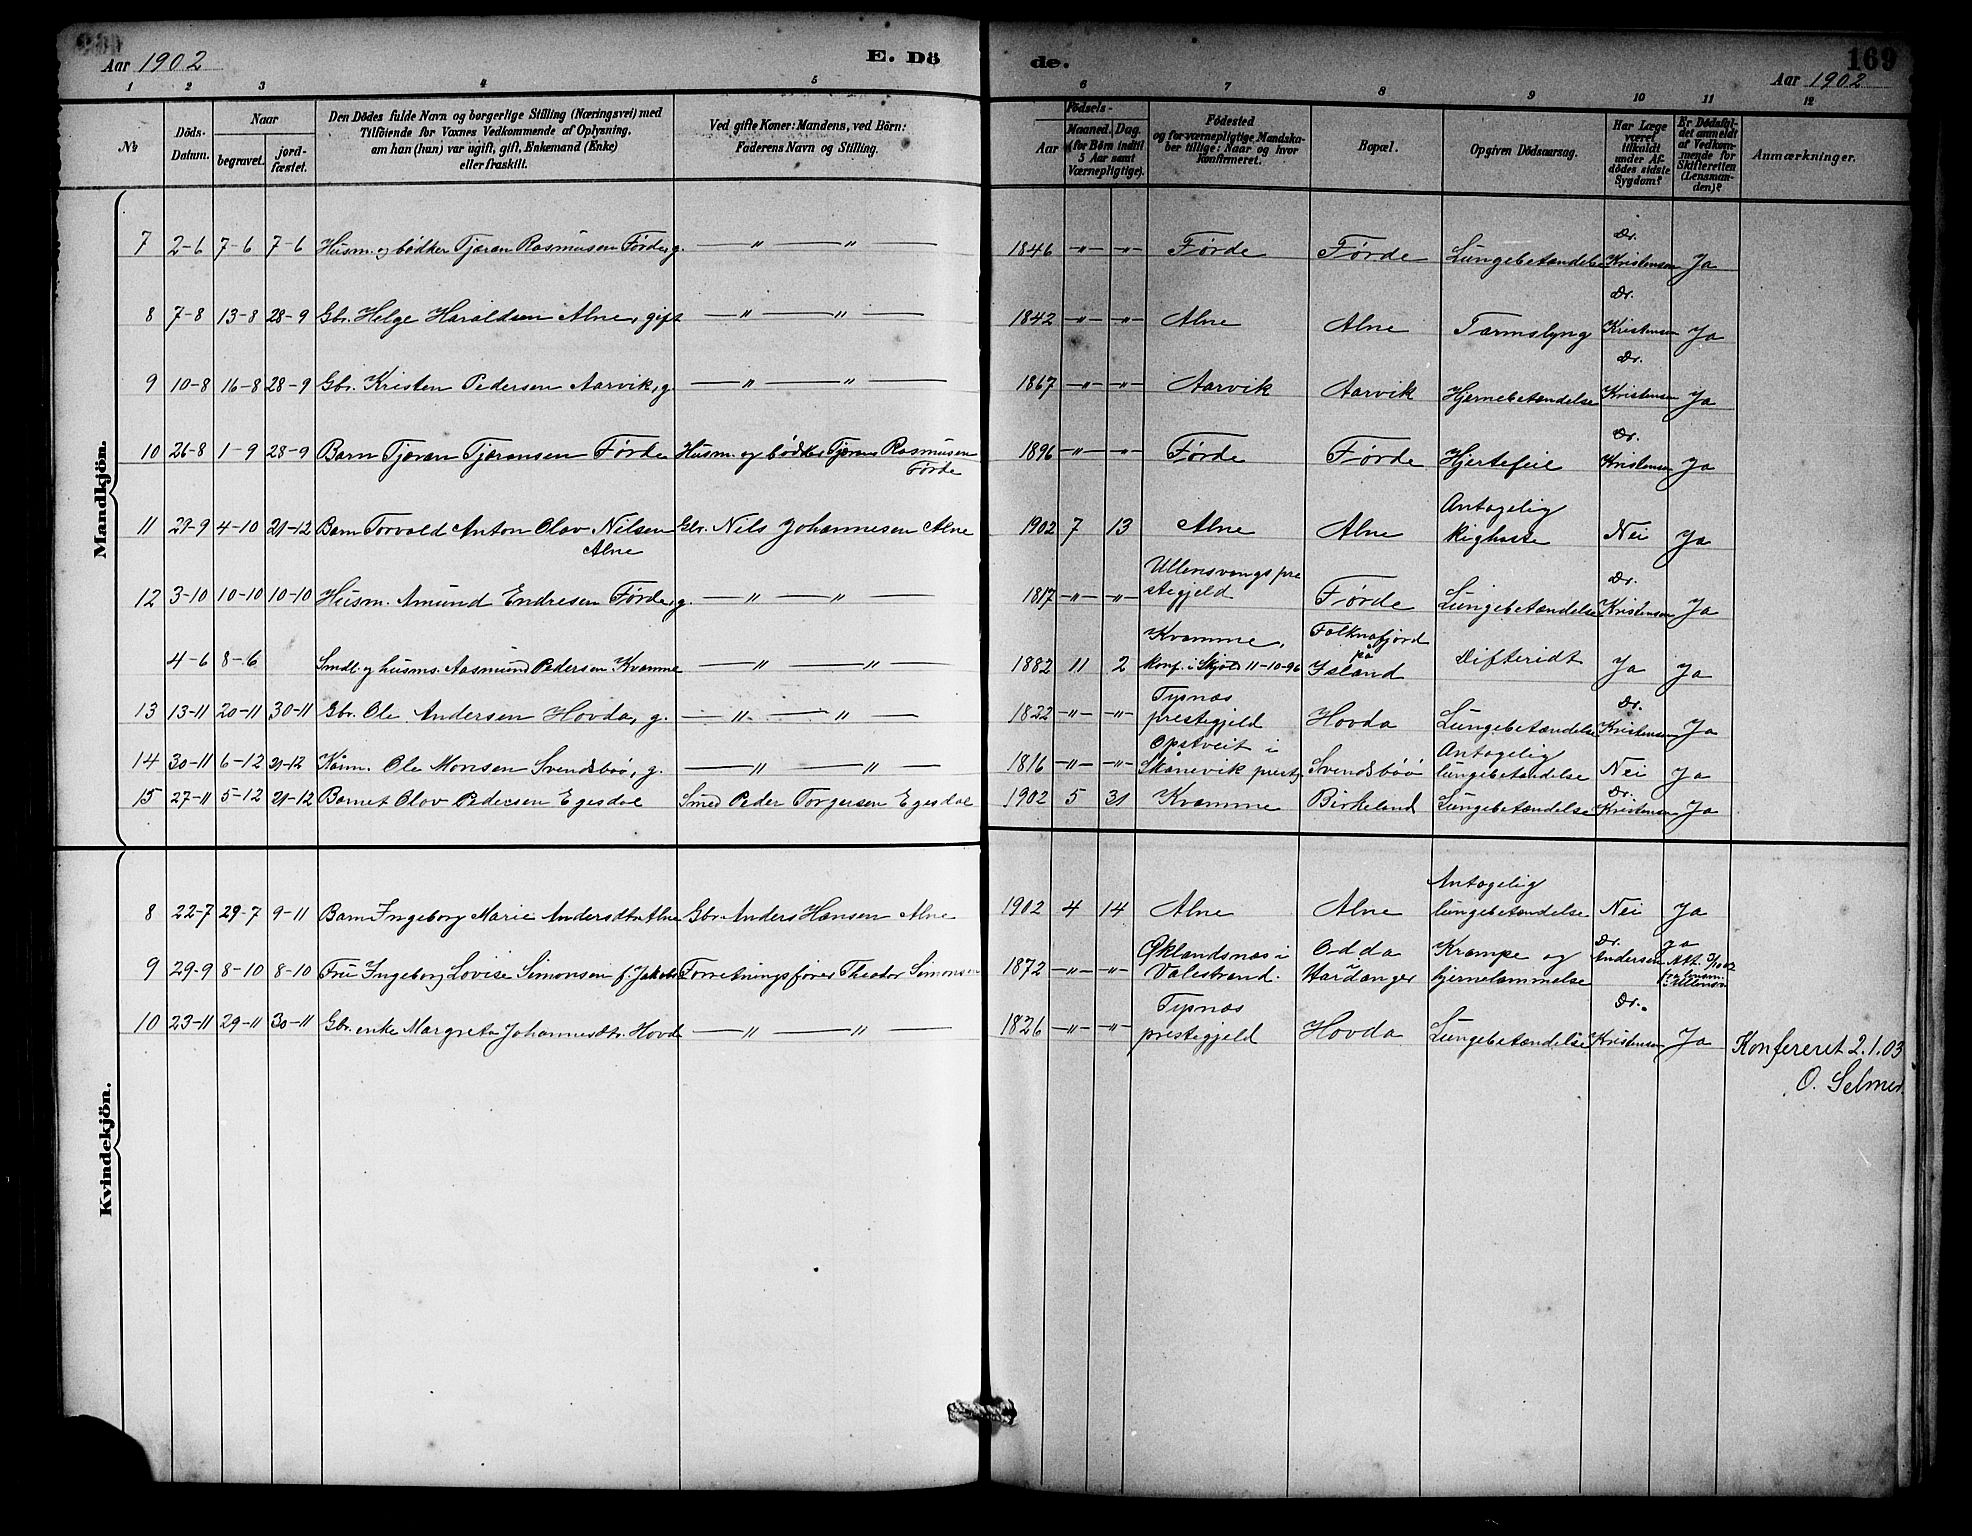 Aar 1902
E. Dö
de.
169
Aar 1902
1 2 3 4 5 6 7 8 9 10 11 12
№
Döds-
Datum.
Naar
begravet.
jord-
fæstet.
Den Dödes fulde Navn og borgerlige Stilling (Næringsvei) med
Tilföiende for Voxnes Vedkommende af Oplysning,
om han (hun) var ugift, gift, Enkemand (Enke)
eller fraskilt.
Ved gifte Koner: Mandens, ved Börn:
Faderens Navn og Stilling.
Födsels-
Aar
Maaned.
Dag.
(for Börn indtil
5 Aar samt
Værnepligtige).
Födested
og for værnepligtige Mandska-
ber tillige: Naar og hvor
Konfirmeret.
Bopæl.
Opgiven Dödsaarsag.
Har Læge
været
tilkaldt
under Af-
dödes sidste
Sygdom?
Er Dödsfal-
det anmeldt
af Vedkom-
mende for
Skifteretten
(Lensman-
den)?
Anmærkninger.
Mandkjön.
7 2-6 7-6 7-6 Husm. og bødker Tjæran Rasmusen Førde, g. —„— —„— 1846 -„- -„- Førde Førde Lungebetændelse Dr. Kristensen Ja
8 7-8 13-8 28-9 Gbr. Helge Haraldsen Alne, gift —„— —„— 1842 -„- -„- Alne Alne Tarmslyng Dr. Kristensen Ja
9 10-8 16-8 28-9 Gbr. Kristen Pedersen Aarvik, g. —„— —„— 1867 -„- -„- Aarvik Aarvik Hjernebetændelse Dr. Kristensen Ja
10 26-8 1-9 28-9 Barn Tjæran Tjæransen Førde Husm. og bødker Tjæran Rasmusen
Førde 1896 -„- -„- Førde Førde Hjertefeil Dr. Kristensen Ja
11 27-9 4-10 21-12 Barn Torvald Anton Olav Nilsen
Alne Gbr. Nils Johannesen Alne 1902 7 13 Alne Alne Antagelig
kighoste Nei Ja
12 3-10 10-10 10-10 Husm. Amund Endresen Førde, g. —„— —„— 1817 -„- -„- Ullensvangs pre
stegjeld Førde Lungebetændelse Dr. Kristensen Ja
4-6 8-6 Smdl. og husms. Aasmund Pedersen Kvamme —„— —„— 1882 11 2 Kvamme,
konf. i Skjold 11-10-96 Falknafjord
på
Island Difteridt Ja Ja
13 13-11 20-11 30-11 Gbr. Ole Andersen Hovda, g. —„— —„— 1822 -„- -„- Tysnæs
prestegjeld Hovda Lungebetændelse Dr. Kristensen Ja
14 30-11 6-12 21-12 Kårm. Ole Monsen Svendsbøø, g. —„— —„— 1816 -„- -„- Opstveit i
Skånevik prestg Svendsbøø Antagelig
lungebetændelse Nei Ja
15 27-11 5-12 21-12 Barnet Olov Pedersen Egesdal Smed Peder Torgersen Egesdal 1902 5 31 Kvamme Birkeland Lungebetændelse Dr. Kristensen Ja
Kvindekjön.
8 22-7 29-7 9-11 Barn Ingeborg Marie Andersdtr. Alne Gbr. Anders Hansen Alne 1902 4 14 Alne Alne Antagelig
lungebetændelse Nei Ja
9 29-9 8-10 8-10 Fru Ingeborg Lovise Simonsen f. Jakobs Forretningsfører Theodor Simonsen 1872 -„- -„- Øklandsnæs i
Valestrand. Odda
Hardanger Krampe og
hjernelammelse Dr.
Andersen Ja
Att.
10 23-11 29-11 30-11 Gbr. enke Margreta Johannesdtr. Hovd —„— —„— 1826 -„- -„- Tysnæs
prestegjeld Hovda Lungebetændelse Dr. Kristensen Ja
Konfereret 2.1.03
O. Selmer.